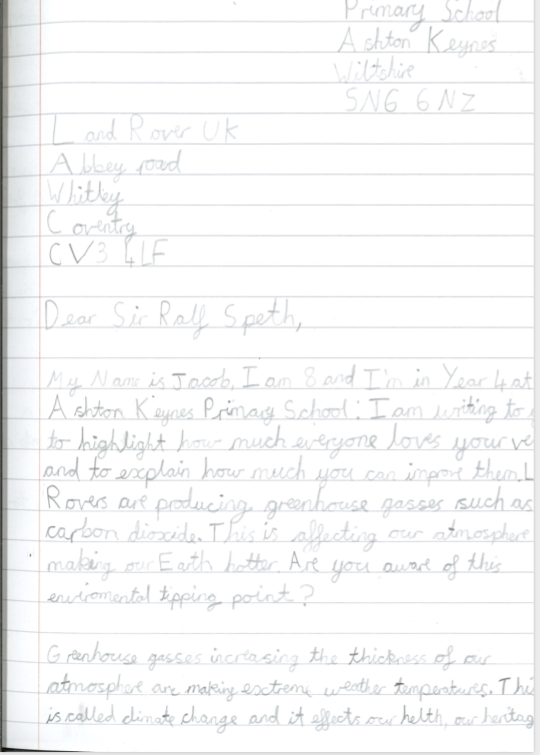 Primary School
Ashton Keynes
Wiltshire
SN6 6NZ
Land Rover UK
Abbey road
Whitley
Coventry
CV3 4LF
Dear Sir Ralf Speth,
My Name is Jacob, I am 8 and I'm in Year 4 at
Ashton Keynes Primary School. I am writing to
to highlight how much everyone loves your ve
and to explain how much you can improve them. L
Rovers are producing greenhouse gasses such as
carbon dioxide. This is affecting our atmosphere
making our Earth hotter. Are you aware of this
enviromental tipping point?
Greenhouse gasses increasing the thickness of our
atmosphere are making extreme weather temperatures. Thi
is called climate change and it effects our helth, our heritag